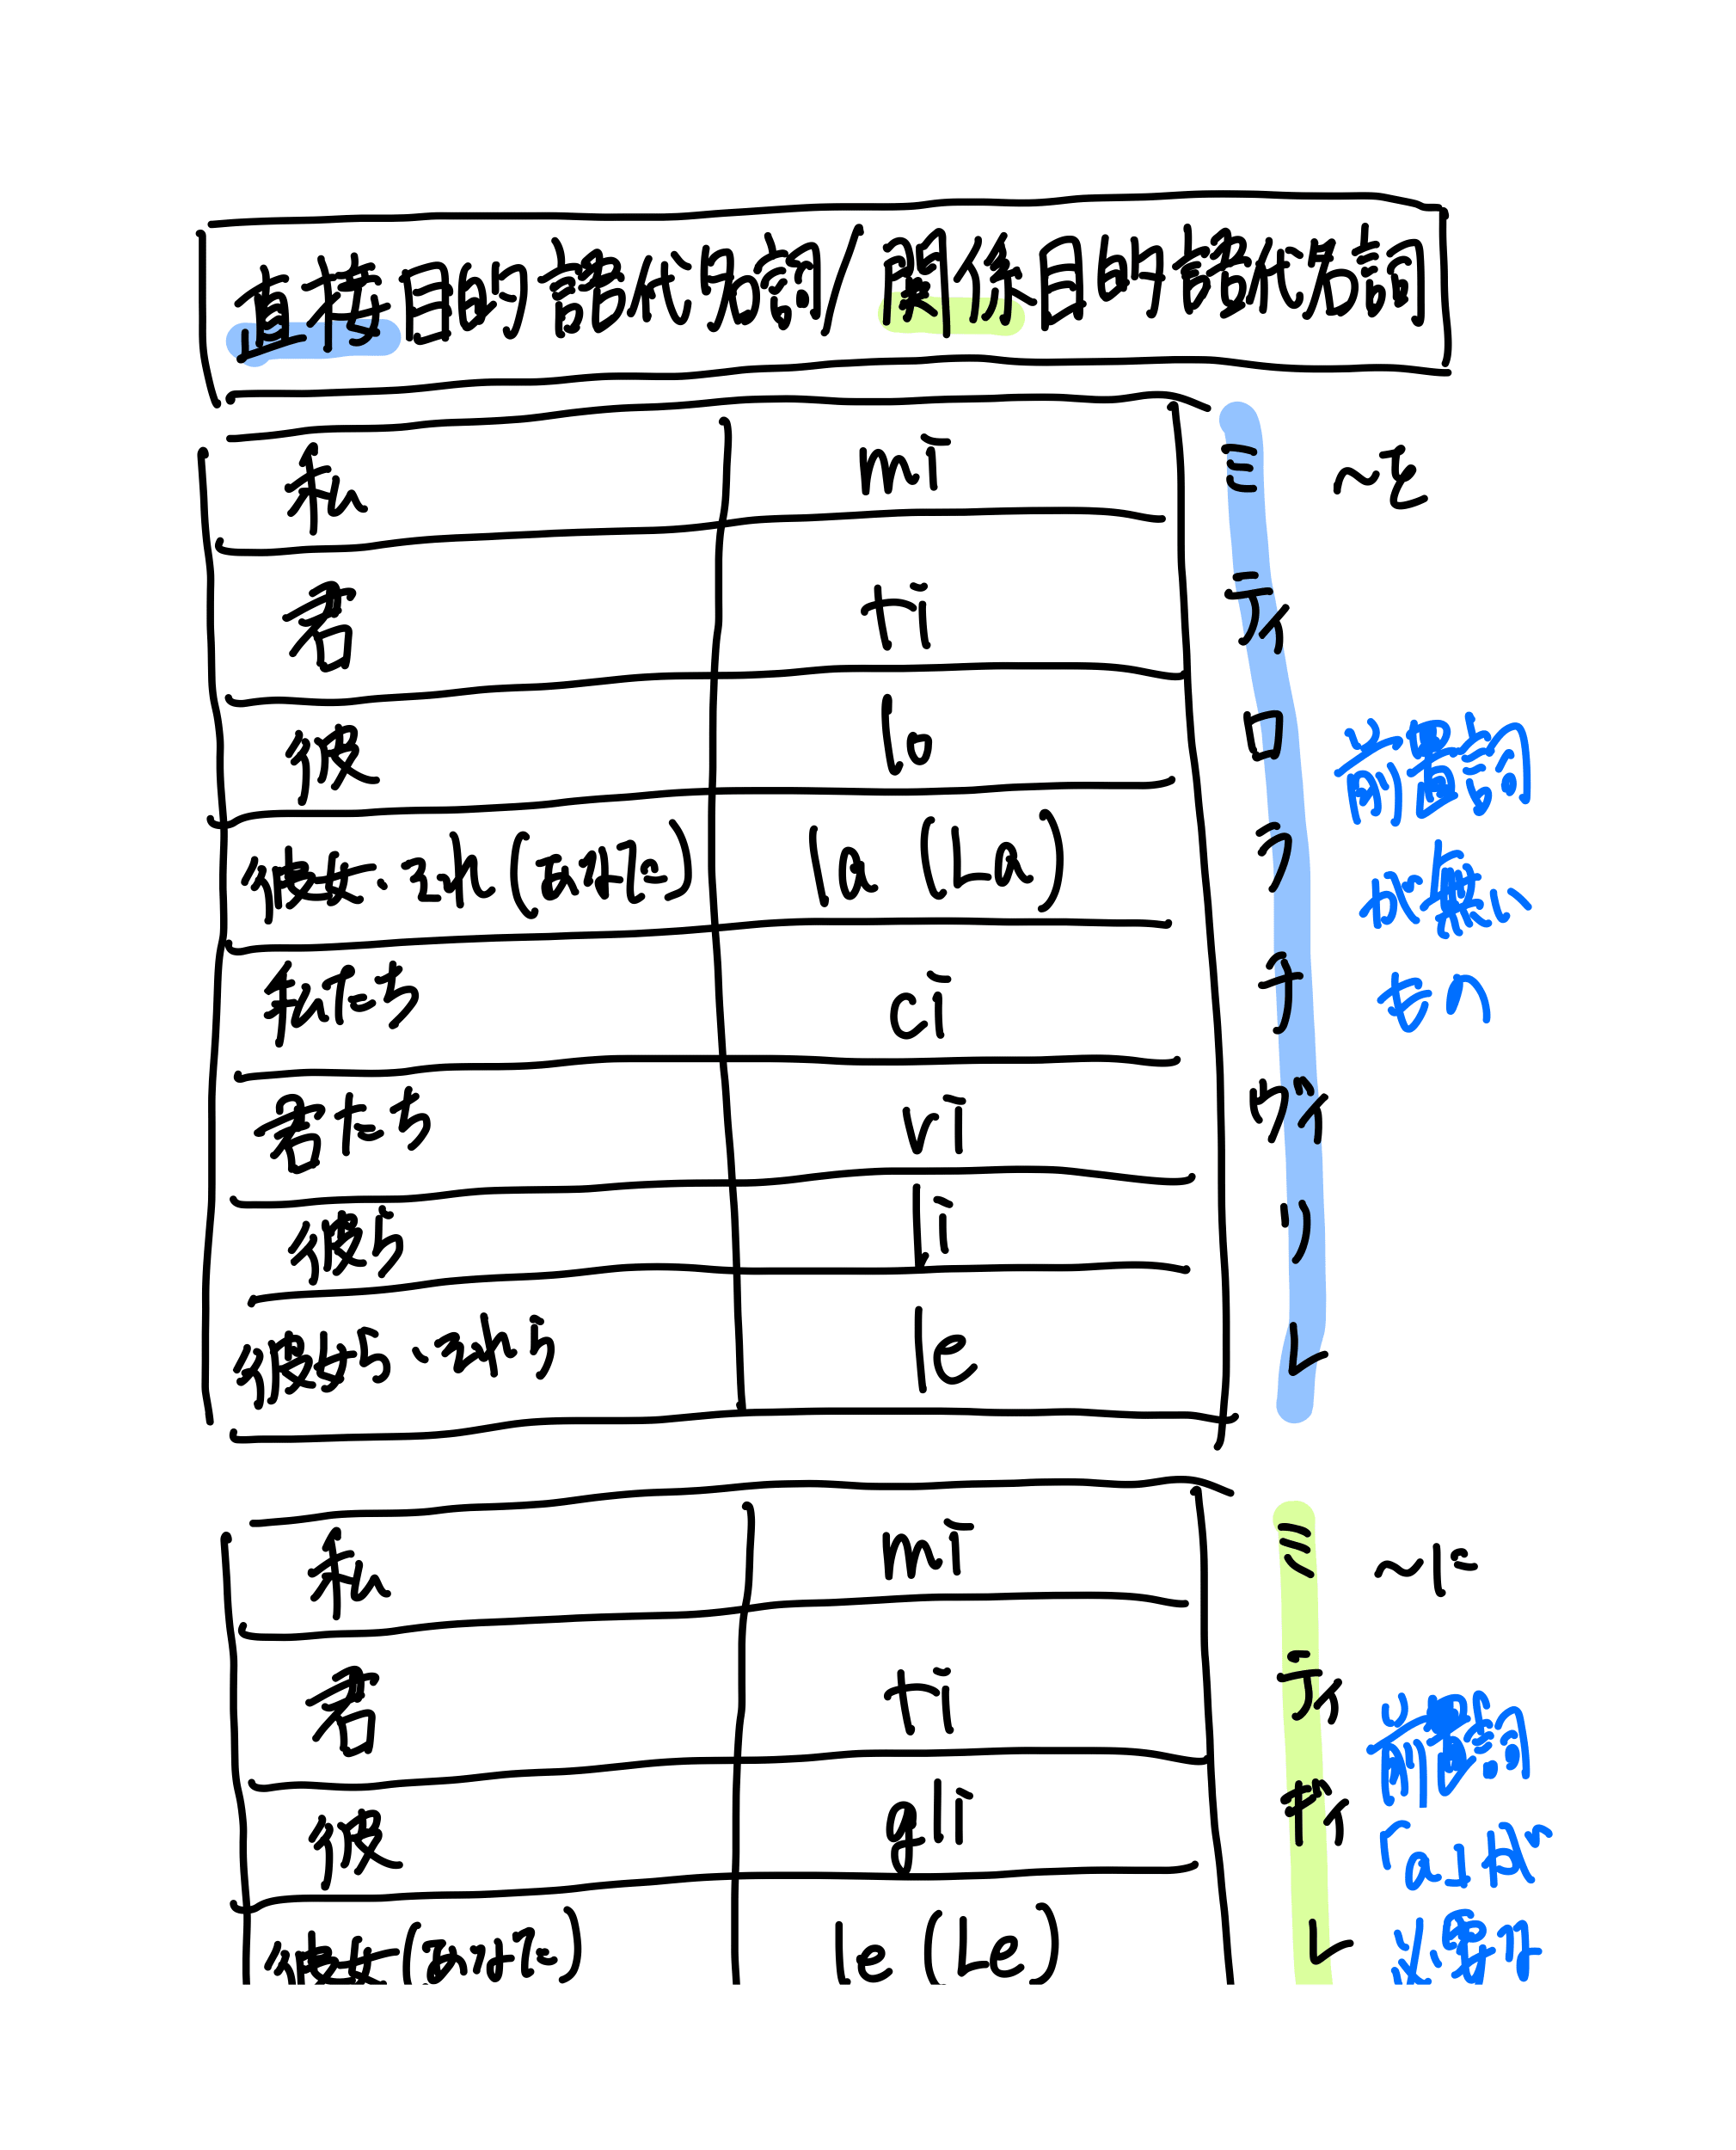 直接目的語代名詞/間接目的語代名詞
私 mi ミ ~を
君 ti ティ
彼 lo ロ
彼女・それ(あなた) la (La) ラ
前置詞
が無い
もの
私たち ci チ
君たち vi ヴィ
彼ら li リ
彼女ら・それら le レ
私 mi ミ ~に
君 ti ティ
彼 gli ギィ
前置詞
「a」が
必要な
彼女(あなた) le (Le) レ